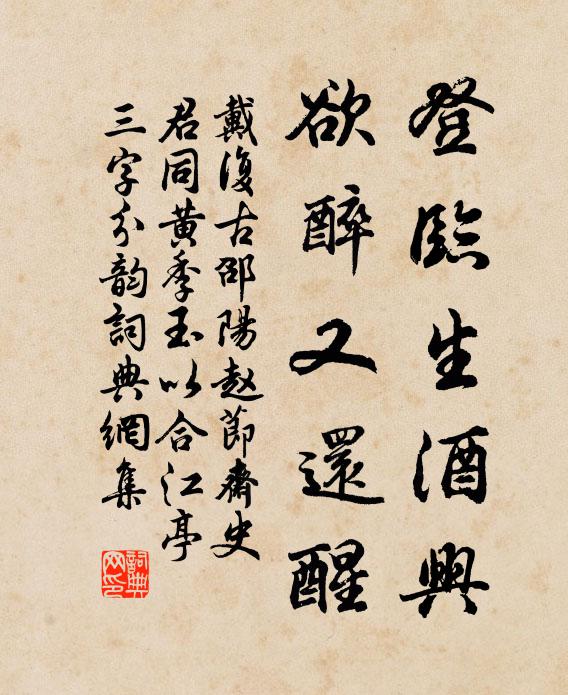 登臨生酒興
欲醉又還醒
戴復古邵陽赵節齋史
君同黄季玉以合江亭
三字分韵詞典網集
詞典
网印